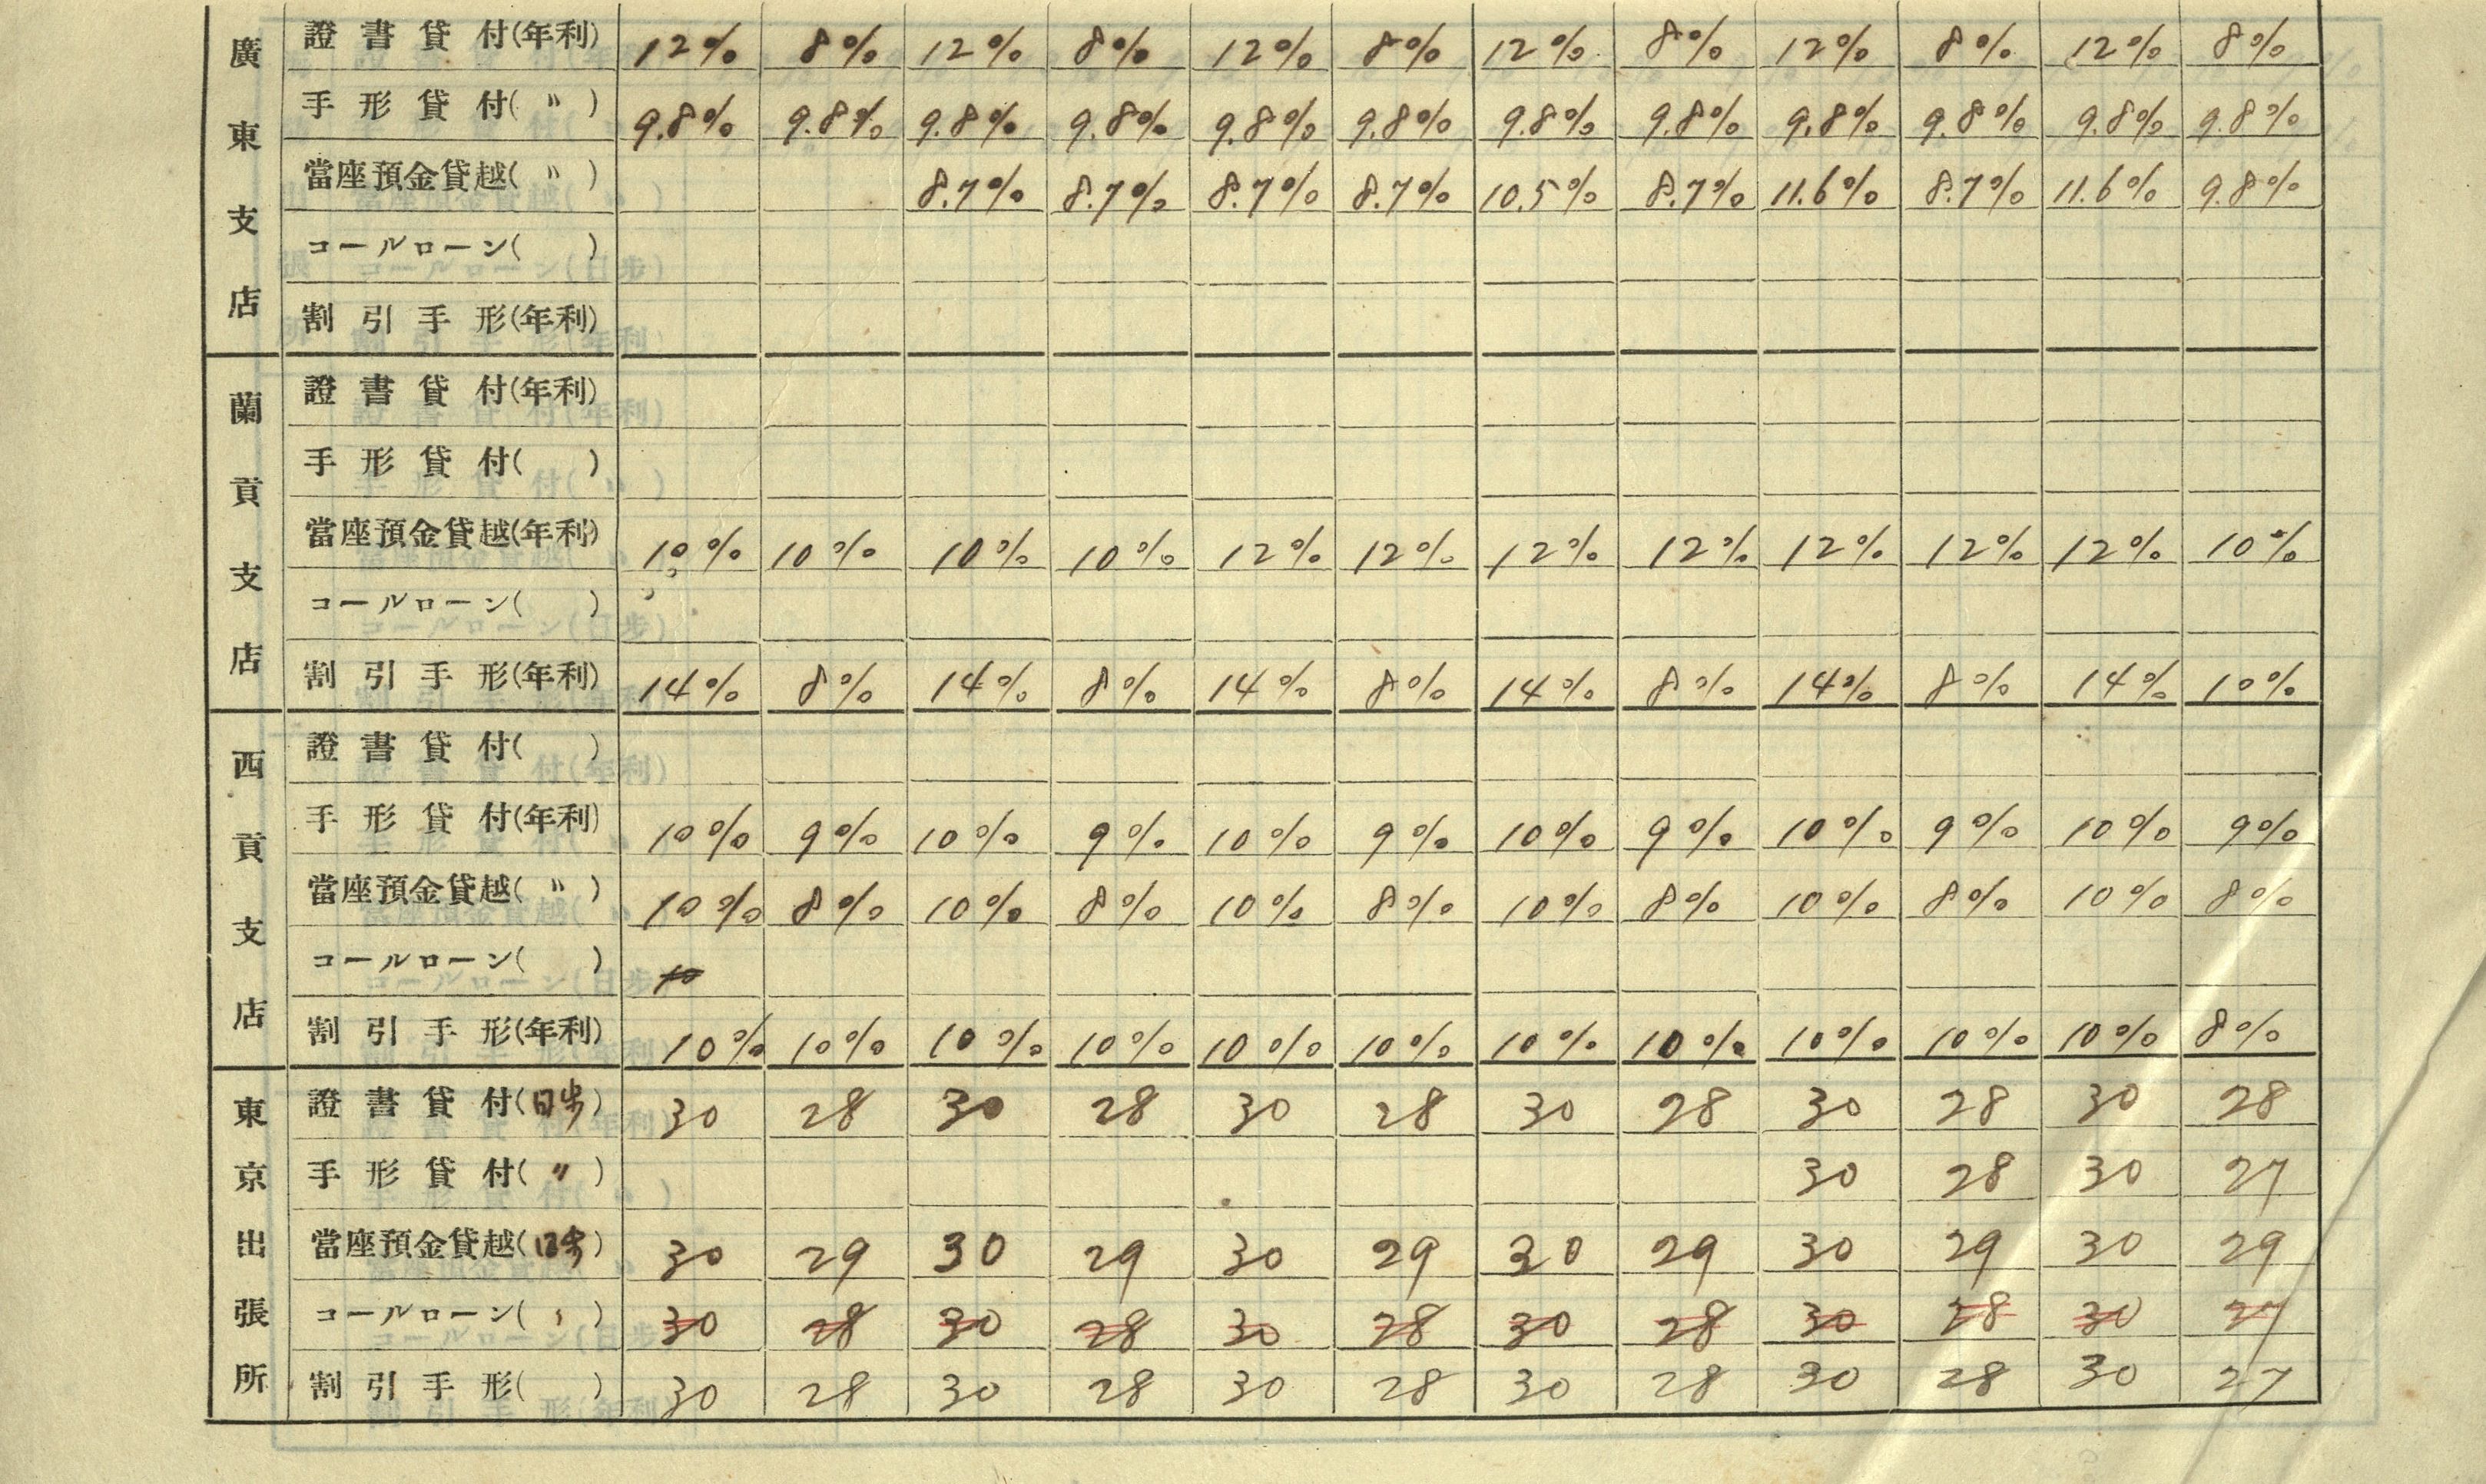 廣東支店
證書貸付(年利) 12% 8% 12% 8% 12% 8% 12% 8% 12% 8% 12% 8%
手形貸付( 〃 ) 9.8% 9.8% 9.8% 9.8% 9.8% 9.8% 9.8% 9.8% 9.8% 9.8% 9.8% 9.8%
當座預金貸越( 〃 ) 8.7% 8.7% 8.7% 8.7% 10.5% 8.7% 11.6% 8.7% 11.6% 9.8%
コールローン( )
割引手形(年利)
蘭貢支店
證書貸付(年利)
手形貸付( )
當座預金貸越(年利) 10% 10% 10% 10% 12% 12% 12% 12% 12% 12% 12% 10%
コールローン( )
割引手形(年利) 14% 8% 14% 8% 14% 8% 14% 8% 14% 8% 14% 10%
西貢支店
證書貸付( )
手形貸付(年利) 10% 9% 10% 9% 10% 9% 10% 9% 10% 9% 10% 9%
當座預金貸越( 〃 ) 10% 8% 10% 8% 10% 8% 10% 8% 10% 8% 10% 8%
コールローン( ) 10
割引手形(年利) 10% 10% 10% 10% 10% 10% 10% 10% 10% 10% 10% 8%
東京出張所
證書貸付(日歩) 30 28 30 28 30 28 30 28 30 28 30 28
手形貸付( 〃 ) 30 28 30 27
當座預金貸越(日歩) 30 29 30 29 30 29 30 29 30 29 30 29
コールローン( 〃 ) 30 28 30 28 30 28 30 28 30 28 30 27
割引手形( ) 30 28 30 28 30 28 30 28 30 28 30 27